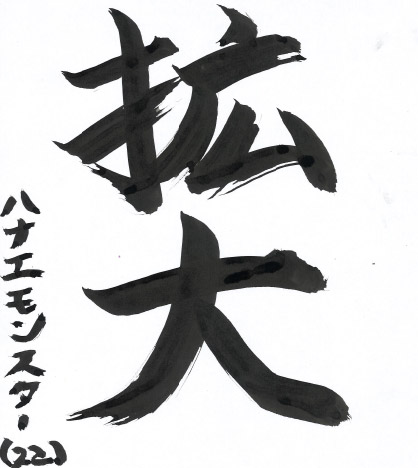 拡大
ハナエモンスター(22)